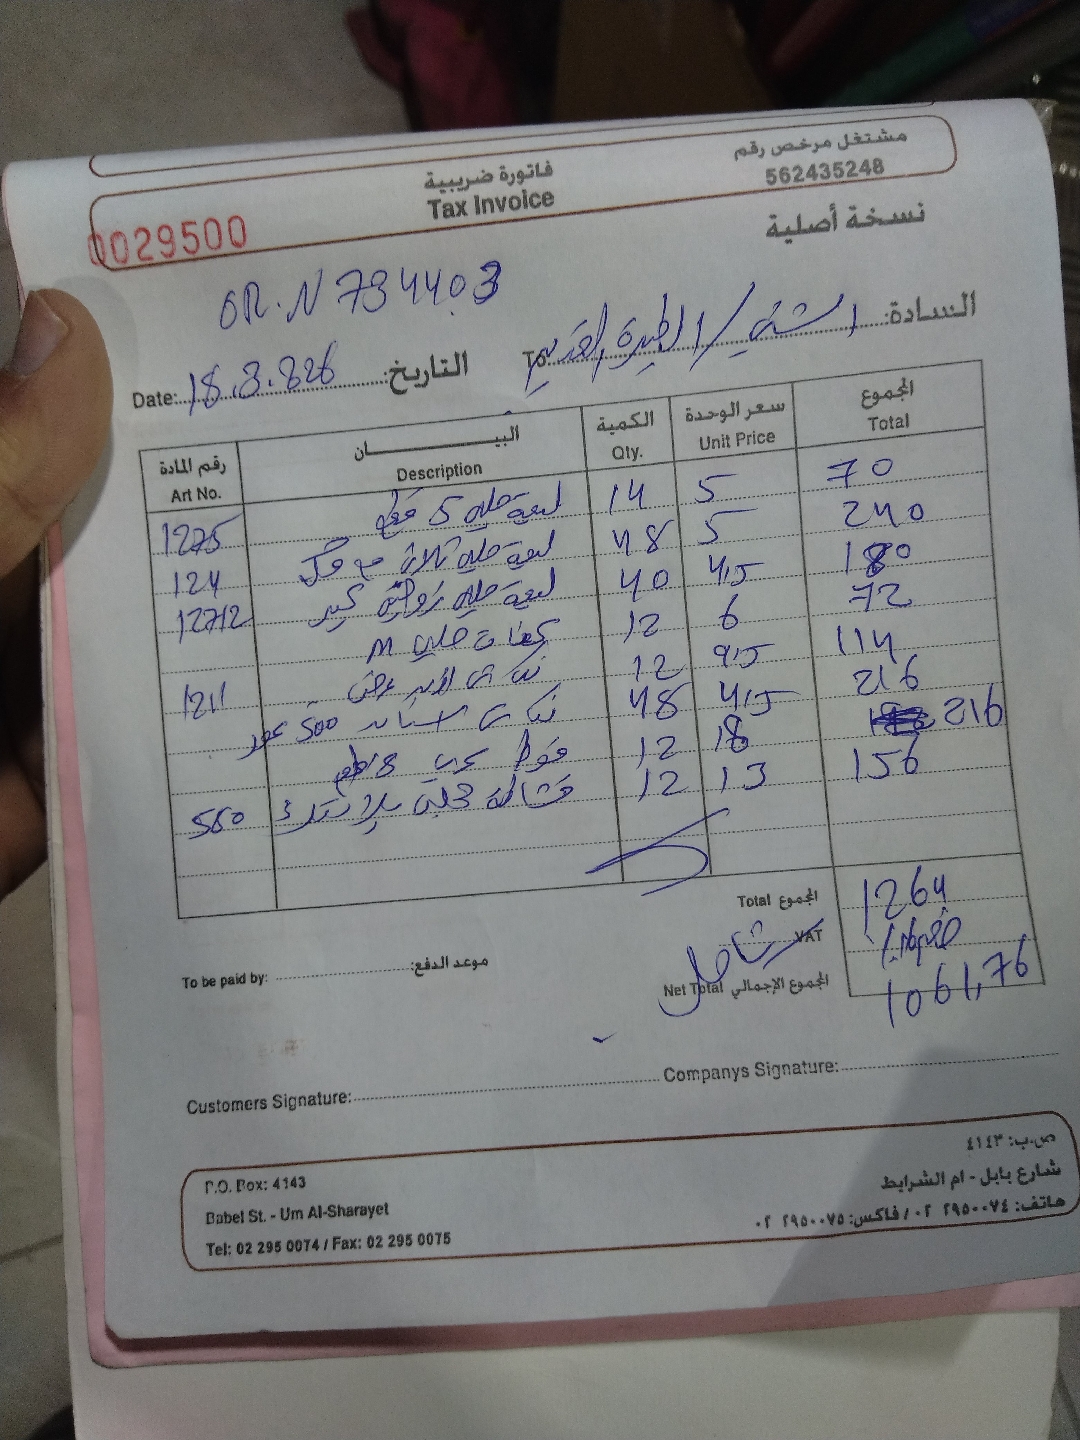 مشتغل مرخص رقم
562435248
فاتورة ضريبية
Tax Invoice
0029500
نسخة أصلية
OR.N 734403
السادة:
To
Date: 18.3.2026 التاريخ:
رقم المادة البيــــــــان الكمية سعر الوحدة المجموع
Art No. Description Qty. Unit Price Total
1275 ليفة حمام 5 قطع 14 5 70
124 ليفة حمام ثلاثة مع 48 5 240
12712 ليفة حمام كبير 40 4,5 180
حمام M 12 6 72
1211 12 9,5 114
500 48 4,5 216
8 12 18 216
560 12 13 156
Total المجموع 1264
VAT
شامل
Net Total المجموع الإجمالي 1061,76
To be paid by: موعد الدفع:
Customers Signature: Companys Signature:
P.O. Box: 4143
Babel St. - Um Al-Sharayet
Tel: 02 295 0074 / Fax: 02 295 0075
ص.ب: ٤١٤٣
شارع بابل - ام الشرايط
هاتف: ٠٢ ٢٩٥٠٠٧٤ / فاكس: ٠٢ ٢٩٥٠٠٧٥